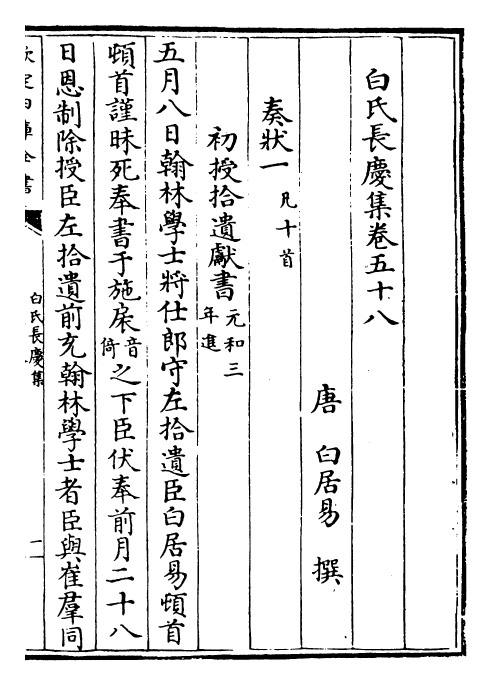 白氏長慶集卷五十八
唐 白居易 撰
奏狀一 凡十首
初授拾遺獻書 元和三年進
五月八日翰林學士將仕郎守左拾遺臣白居易頓首
頓首謹昧死奉書于施扆音倚之下臣伏奉前月二十八
日恩制除授臣左拾遺前充翰林學士者臣與崔羣同
欽定四庫全書
白氏長慶集